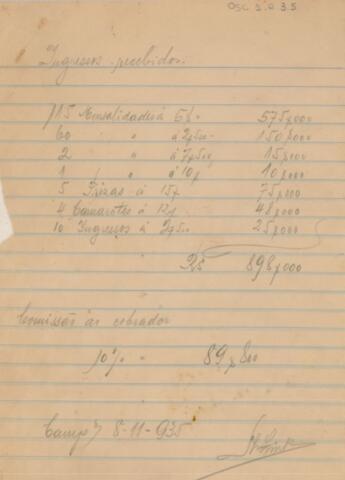 OSC 2.2.35
Ingressos recebidos.
115 Mensalidades á 5$ 575$000
60 " á 2$500 150$000
2 " á 7$500 15$000
1 " á 10$ 10$000
5 Frizas á 15$ 75$000
4 Camarotes á 12$ 48$000
10 Ingressos á 2$500 25$000
RS 898$000
Comissão ao cobrador
10% " 89$800
Camp 8-11-935